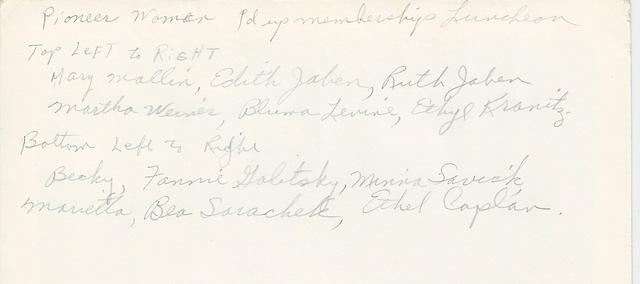 Pioneer Women Pd up membership Luncheon
Top Left to Right
Mary Mallin, Edith Jaben, Ruth Jaben
Martha Weiner, Bluma Levine, Ethyl Kranitz
Bottom Left to Right
Becky, Fannie Golitsky, Minnia Savick
Marietta, Bea Sarachek, Ethel Caplan.